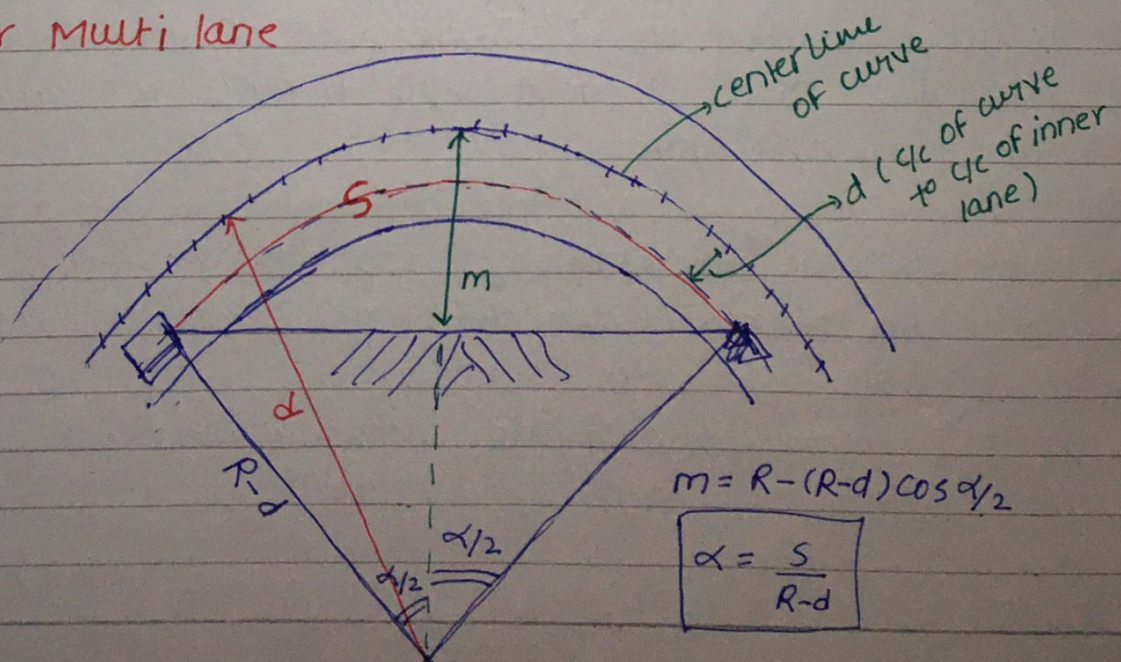 r Multi lane
centerline
of curve
d ( c/c of curve
to c/c of inner
lane)
S
m
R
R-d
α/2
α/2
m = R-(R-d) cos α/2
α = S
R-d